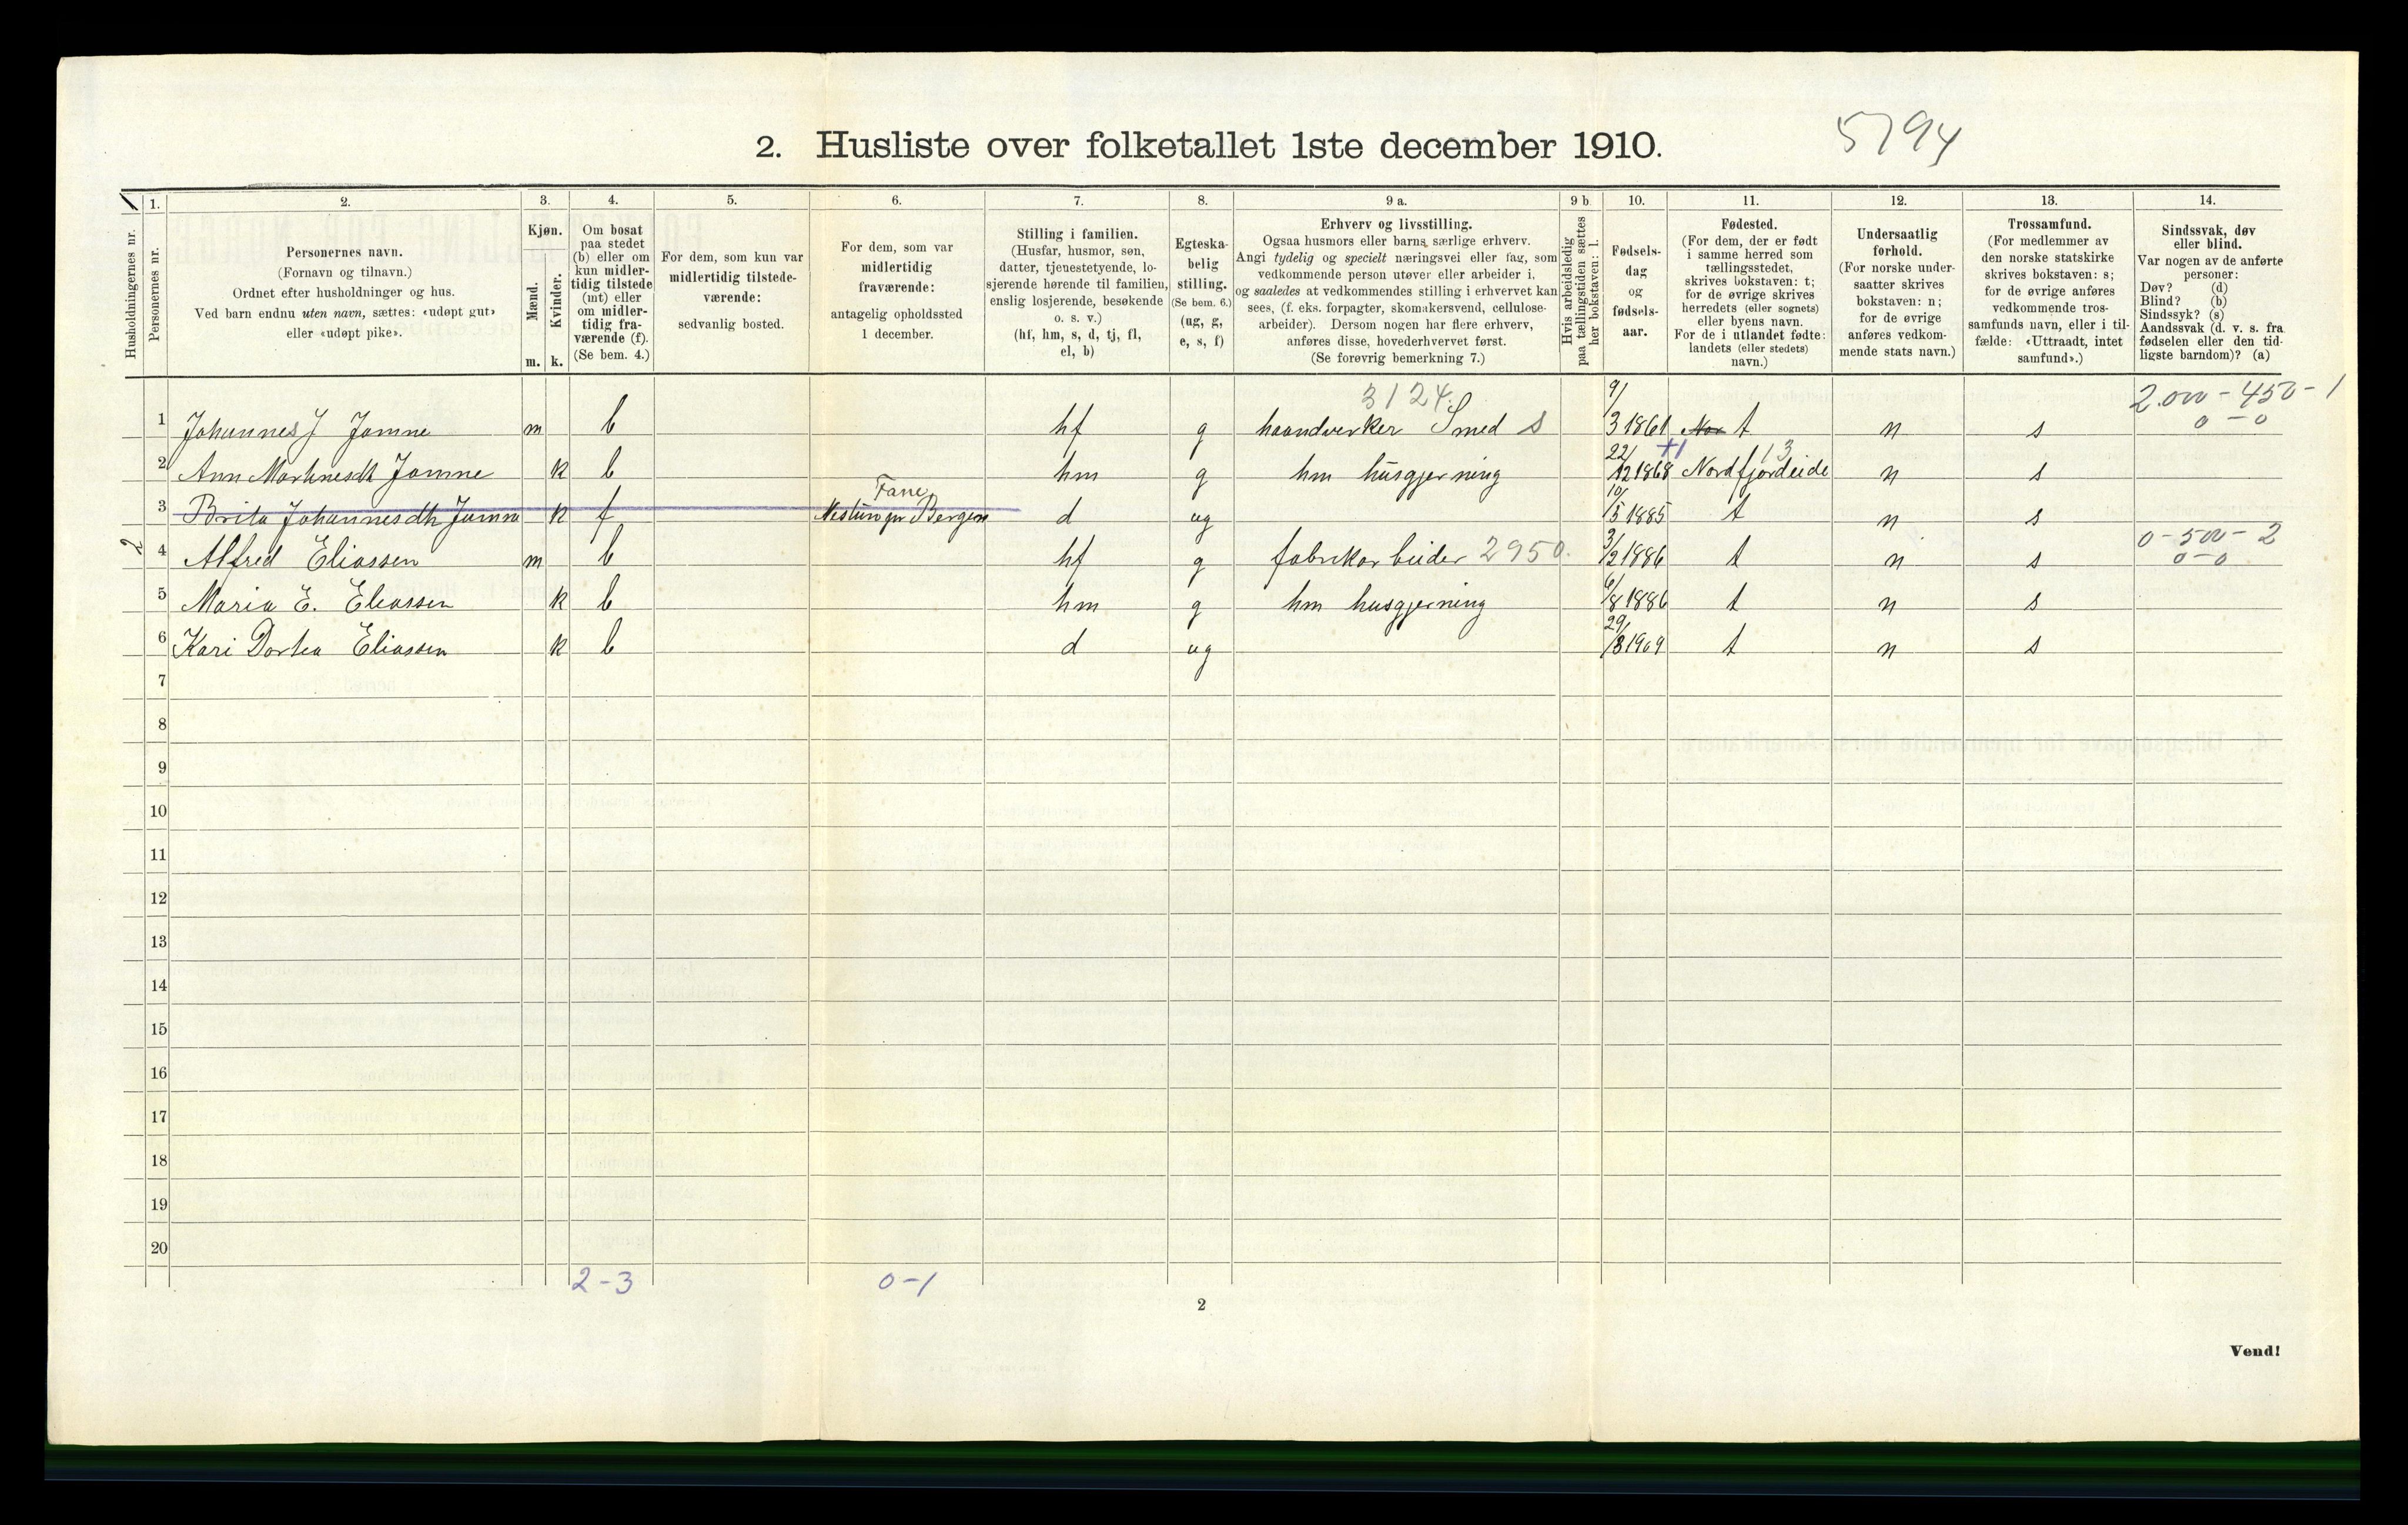 2. Husliste over folketallet 1ste december 1910.
5794
1
Husholdningernes nr.
1.
Personernes nr.
2.
Personernes navn.
(Fornavn og tilnavn.)
Ordnet efter husholdninger og hus.
Ved barn endnu uten navn, sættes: «udøpt gut»
eller «udøpt pike».
3.
Kjøn.
Mænd.
Kvinder.
m. k.
4.
Om bosat
paa stedet
(b) eller om
kun midler-
tidig tilstede
(mt) eller
om midler-
tidig fra-
værende (f).
(Se bem. 4.)
5.
For dem, som kun var
midlertidig tilstede-
værende:
sedvanlig bosted.
6.
For dem, som var
midlertidig
fraværende:
antagelig opholdssted
1 december.
7.
Stilling i familien.
(Husfar, husmor, søn,
datter, tjenestetyende, lo-
sjerende hørende til familien,
enslig losjerende, besøkende
o. s. v.)
(hf, hm, s, d, tj, fl,
el, b)
8.
Egteska-
belig
stilling.
(Se bem. 6.)
(ug, g,
e, s, f)
9 a.
Erhverv og livsstilling.
Ogsaa husmors eller barns særlige erhverv.
Angi tydelig og specielt næringsvei eller fag, som
vedkommende person utøver eller arbeider i,
og saaledes at vedkommendes stilling i erhvervet kan
sees, (f. eks. forpagter, skomakersvend, cellulose-
arbeider). Dersom nogen har flere erhverv,
anføres disse, hovederhvervet først.
(Se forøvrig bemerkning 7.)
9 b
Hvis arbeidsledig
paa tællingstiden sættes
her bokstaven: l.
10.
Fødsels-
dag
og
fødsels-
aar.
11.
Fødested.
(For dem, der er født
i samme herred som
tællingsstedet,
skrives bokstaven: t;
for de øvrige skrives
herredets (eller sognets)
eller byens navn.
For de i utlandet fødte:
landets (eller stedets)
navn.)
12.
Undersaatlig
forhold.
(For norske under-
saatter skrives
bokstaven: n;
for de øvrige
anføres vedkom-
mende stats navn.)
13.
Trossamfund.
(For medlemmer av
den norske statskirke
skrives bokstaven: s;
for de øvrige anføres
vedkommende tros-
samfunds navn, eller i til-
fælde: «Uttraadt, intet
samfund».)
14.
Sindssvak, døv
eller blind.
Var nogen av de anførte
personer:
Døv? (d)
Blind? (b)
Sindssyk? (s)
Aandssvak (d. v. s. fra
fødselen eller den tid-
ligste barndom)? (a)
3124. 2.000 - 450 - 1
1 Johannes J Jamne m b hf g haandverker Smed s 9/3 1861 t n s 0 - 0
+1 13
2 Ann Martinesdt Jamne k b hm g hm husgjerning 22/12 1868 Nordfjordeide n s
Fane
3 Brita Johannesdtr Jamne k f Nestun pr Bergen d ug 10/5 1885 t n s
0 - 500 - 2
2 4 Alfred Eliassen m b hf g fabrikarbeider 2950. 3/2 1886 t n s 0 - 0
5 Maria E. Eliassen k b hm g hm husgjerning 6/8 1886 t n s
6 Kari Dortea Eliassen k b d ug 29/8 1909 t n s
7
8
9
10
11
12
13
14
15
16
17
18
19
20
2 - 3 0 - 1
2
Vend!